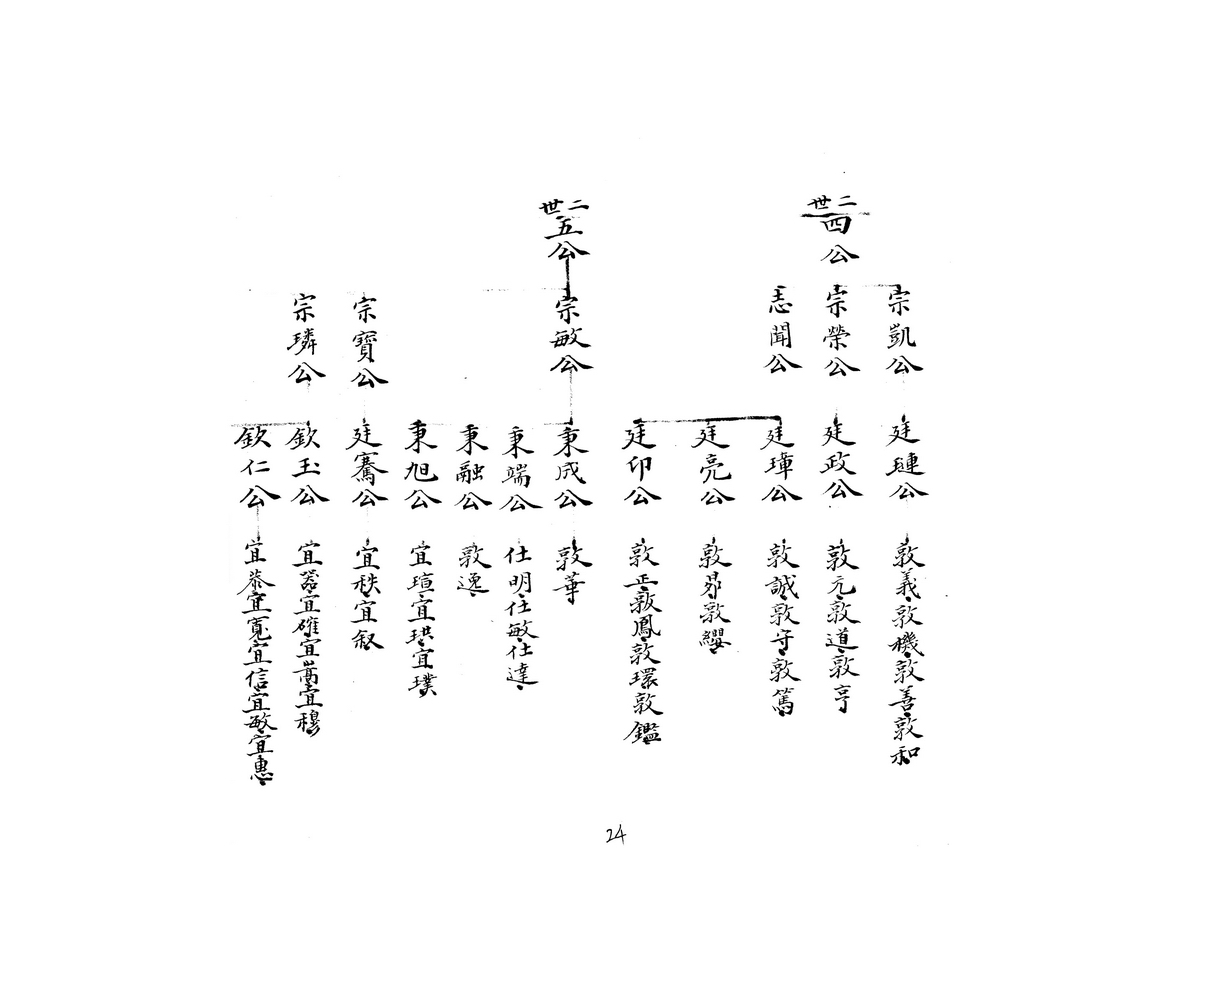 二世
四公
宗凱公
宗榮公
志聞公
廷璉公
廷政公
廷璋公
廷亮公
廷印公
敦義敦機敦善敦和
敦元敦道敦亨
敦誠敦守敦篤
敦昴敦纓
敦正敦鳳敦環敦鑑
二世
五公
宗敏公
宗寶公
宗璘公
秉成公
秉端公
秉融公
秉旭公
廷騫公
欽玉公
欽仁公
敦華
仕明仕敏仕達
敦逸
宜瑄宜珙宜璞
宜秩宜叙
宜嚣宜確宜嵩宜穆
宜泰宜寬宜信宜敏宜惠
24